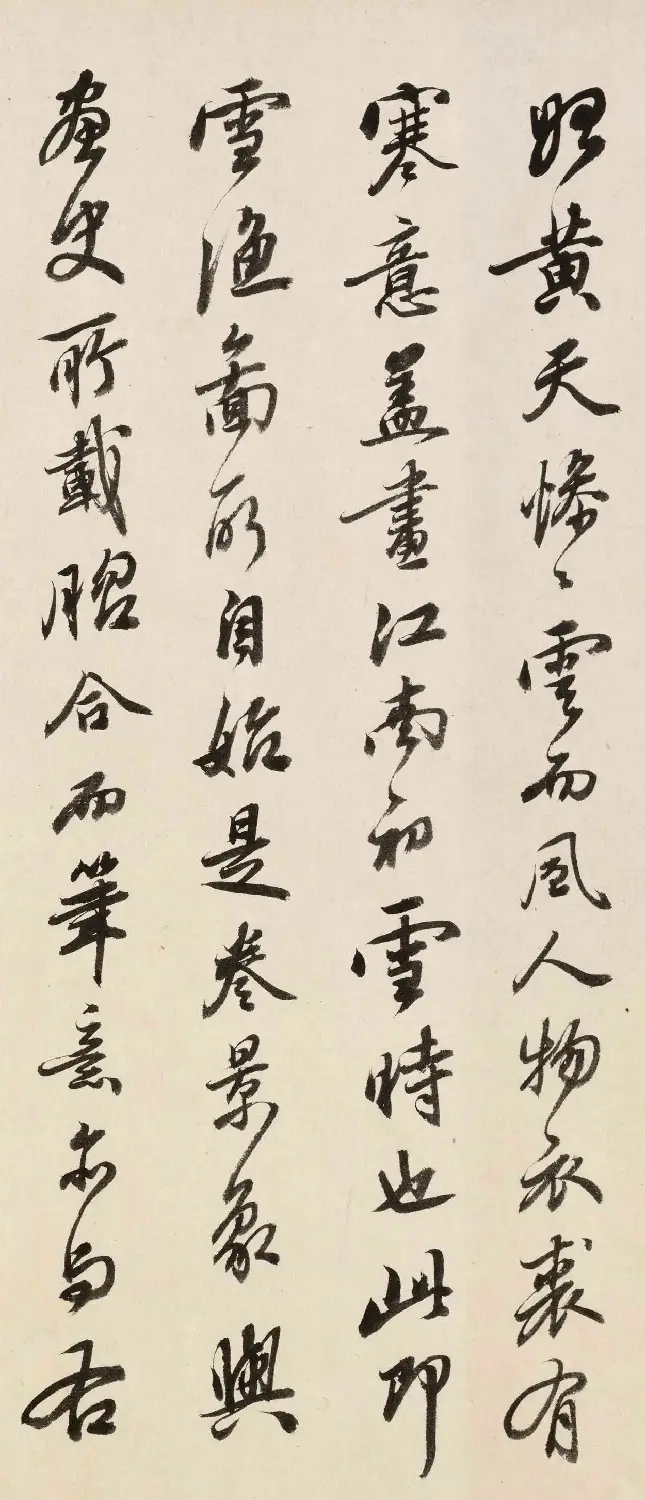 黄天慘〻雲而風人物衣裘有
寒意蓋畫江南初雪時也此即
雪漁圖所自始是卷景象與
畫史所載脗合而筆意亦与右